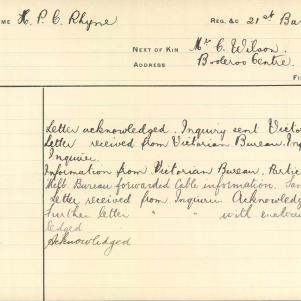 ME H. P. C. Rhyne REG. &C 21st Ba
NEXT OF KIN Mr C. Wilson.
ADDRESS Booleroo Centre.
FI
Letter acknowledged. Inquiry sent Victo
Letter received from Victorian Bureau. Inq
Inquirer.
Information from Victorian Bureau. Partic
Bureau forwarded Cable information. San
Letter received from Inquirer Acknowledg
Further letter " " with enclos
ledged
Acknowledged